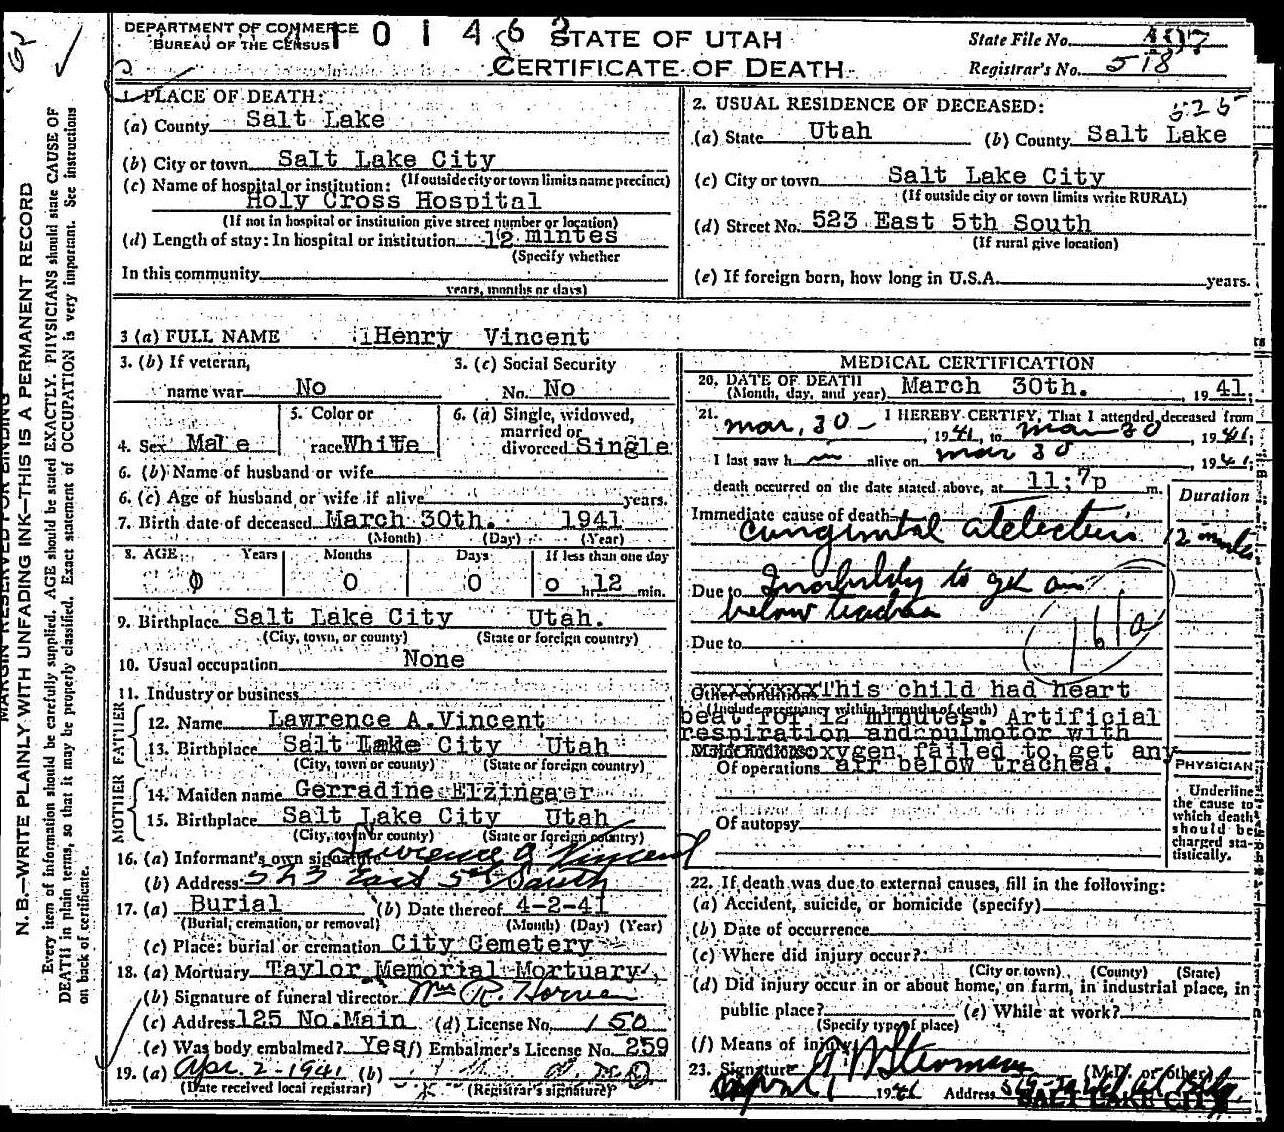 DEPARTMENT OF COMMERCE
BUREAU OF THE CENSUS
STATE OF UTAH
CERTIFICATE OF DEATH
State File No.
Registrar's No. 518
MARGIN RESERVED FOR BINDING
N. B.—WRITE PLAINLY WITH UNFADING INK—THIS IS A PERMANENT RECORD
Every item of information should be carefully supplied. AGE should be stated EXACTLY. PHYSICIANS should state CAUSE OF
DEATH in plain terms, so that it may be properly classified. Exact statement of OCCUPATION is very important. See Instructions
on back of certificate.
1. PLACE OF DEATH:
(a) County Salt Lake
(b) City or town Salt Lake City
(If outside city or town limits name precinct)
(c) Name of hospital or institution:
Holy Cross Hospital
(If not in hospital or institution give street number or location)
(d) Length of stay: In hospital or institution 12 mintes
(Specify whether
In this community
years, months or days)
2. USUAL RESIDENCE OF DECEASED: 525
(a) State Utah (b) County Salt Lake
(c) City or town Salt Lake City
(If outside city or town limits write RURAL)
(d) Street No. 523 East 5th South
(If rural give location)
(e) If foreign born, how long in U.S.A. years.
3 (a) FULL NAME Henry Vincent
3. (b) If veteran,
name war No
3. (c) Social Security
No. No
4. Sex Male
5. Color or
race White
6. (a) Single, widowed,
married or
divorced Single
6. (b) Name of husband or wife
6. (c) Age of husband or wife if alive years.
7. Birth date of deceased March 30th. 1941
(Month) (Day) (Year)
8. AGE Years Months Days If less than one day
0 0 0 0 hr. 12 min.
9. Birthplace Salt Lake City Utah.
(City, town, or county) (State or foreign country)
10. Usual occupation None
11. Industry or business
FATHER
12. Name Lawrence A. Vincent
13. Birthplace Salt Lake City Utah
(City, town or county) (State or foreign country)
MOTHER
14. Maiden name Gerradine Elzingaer
15. Birthplace Salt Lake City Utah
(City, town or county) (State or foreign country)
16. (a) Informant's own signature Lawrence A Vincent
(b) Address 523 East 5th South
17. (a) Burial (b) Date thereof 4-2-41
(Burial, cremation, or removal) (Month) (Day) (Year)
(c) Place: burial or cremation City Cemetery
18. (a) Mortuary Taylor Memorial Mortuary,
(b) Signature of funeral director Mrs R.
(c) Address 125 No. Main (d) License No. 150
(e) Was body embalmed? Yes (f) Embalmer's License No. 259
19. (a) Apr. 2-1941 (b)
(Date received local registrar) (Registrar's signature)
MEDICAL CERTIFICATION
20. DATE OF DEATH
(Month, day, and year) March 30th. , 1941;
21. I HEREBY CERTIFY, That I attended deceased from
mar, 30 - , 1941, to mar 30 , 1941;
I last saw h im alive on mar 30 , 1941;
death occurred on the date stated above, at 11;7p m.
Duration
Immediate cause of death
congenital atelectasis 12 minutes
Due to Inability to get air
below trachea
161a
Due to
Other conditions This child had heart
(Include pregnancy within 3 months of death)
beat for 12 minutes. Artificial
respiration and pulmotor with
oxygen failed to get any
Of operations air below trachea.
Of autopsy
PHYSICIAN
Underline
the cause to
which death
should be
charged sta-
tistically.
22. If death was due to external causes, fill in the following:
(a) Accident, suicide, or homicide (specify)
(b) Date of occurrence
(c) Where did injury occur?
(City or town) (County) (State)
(d) Did injury occur in or about home, on farm, in industrial place, in
public place? (e) While at work?
(Specify type of place)
(f) Means of injury
23. Signature (M.D. or other)
April 1 1941 Address
SALT LAKE CITY